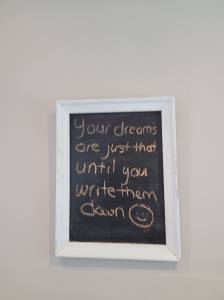 your dreams
are just that
until you
write them
down